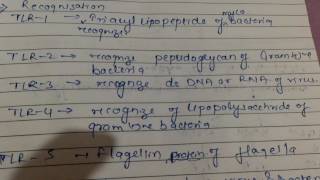 > Recognisation
TLR-1 → Triacyl lipopeptide of myco bacteria
recognize
TLR-2 → recognize peptidoglycan of Gram +ve
bacteria
TLR-3 → recognize ds DNA or RNA of virus.
TLR-4 → recognize of lipopolysaccharide of
gram -ve bacteria
TLR-5 → Flagellin protein of flagella
bacteri